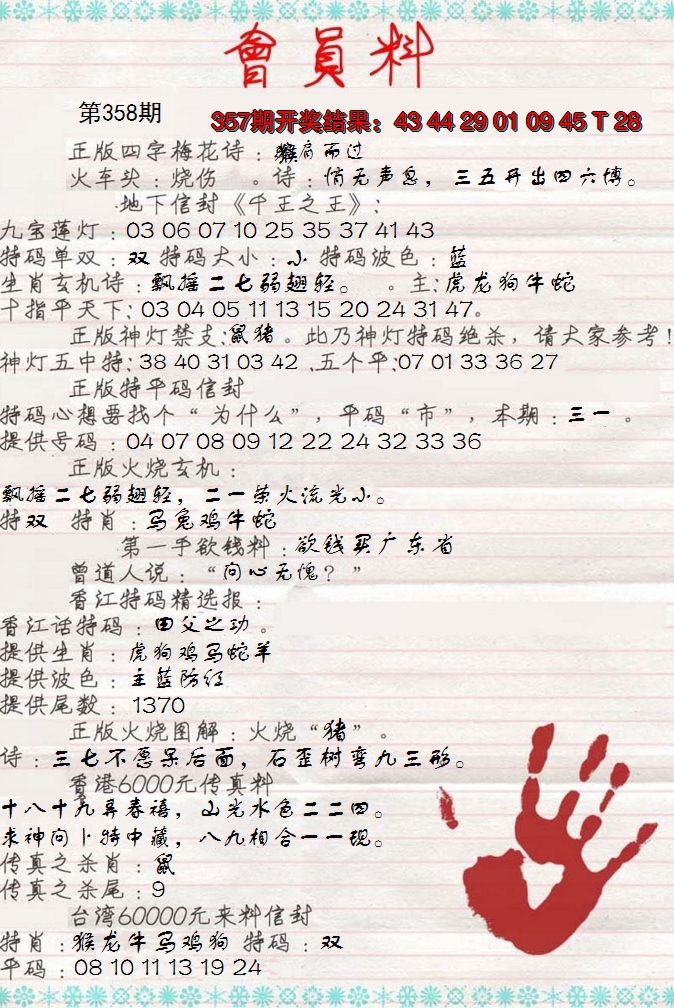 會員料
第358期
357期开奖结果：43 44 29 01 09 45 T 28
正版四字梅花诗：猴肩而过
火车头：烧伤 。诗：悄无声息，三五开出四六博。
地下信封《千王之王》：
九宝莲灯：03 06 07 10 25 35 37 41 43
特码单双：双 特码大小：小 特码波色：蓝
生肖玄机诗：飘摇二七弱翅轻。 。主：虎龙狗牛蛇
十指平天下：03 04 05 11 13 15 20 24 31 47。
正版神灯禁支：鼠猪。此乃神灯特码绝杀，请大家参考！
神灯五中特：38 40 31 03 42 .五个平：07 01 33 36 27
正版特平码信封
特码心想要找个“为什么”，平码“市”，本期：三一 。
提供号码：04 07 08 09 12 22 24 32 33 36
正版火烧玄机：
飘摇二七弱翅轻，二一荣火流光小。
特双 特肖：马兔鸡牛蛇
第一手欲钱料：欲钱买广东省
曾道人说：“问心无愧？”
香江特码精选报：
香江话特码：田父之功。
提供生肖：虎狗鸡马蛇羊
提供波色：主蓝防红
提供尾数：1370
正版火烧图解：火烧“猪”。
诗：三七不愿呆后面，石歪树弯九三形。
香港6000元传真料
十八十九弄春禧，山光水色二二四。
求神问卜特中藏，八九相合一一现。
传真之杀肖：鼠
传真之杀尾：9
台湾60000元来料信封
特肖：猴龙牛马鸡狗 特码：双
平码：08 10 11 13 19 24